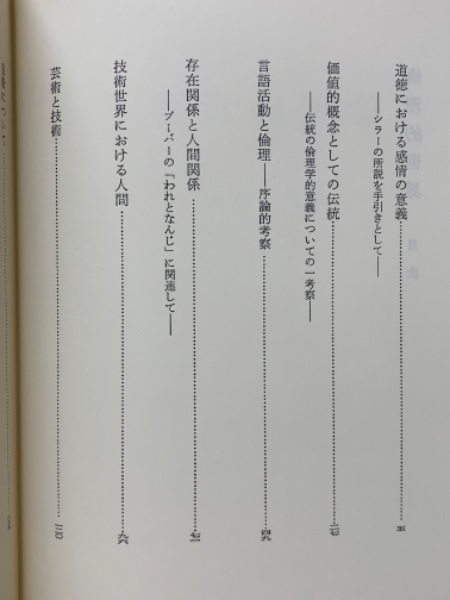 道徳における感情の意義……五
――シラーの所説を手引きとして――
価値的概念としての伝統……二七
――伝統の倫理学的意義についての一考察――
言語活動と倫理――序論的考察……四九
存在関係と人間関係……七一
――ブーバーの『われとなんじ』に関連して――
技術世界における人間……九六
芸術と技術……一三〇